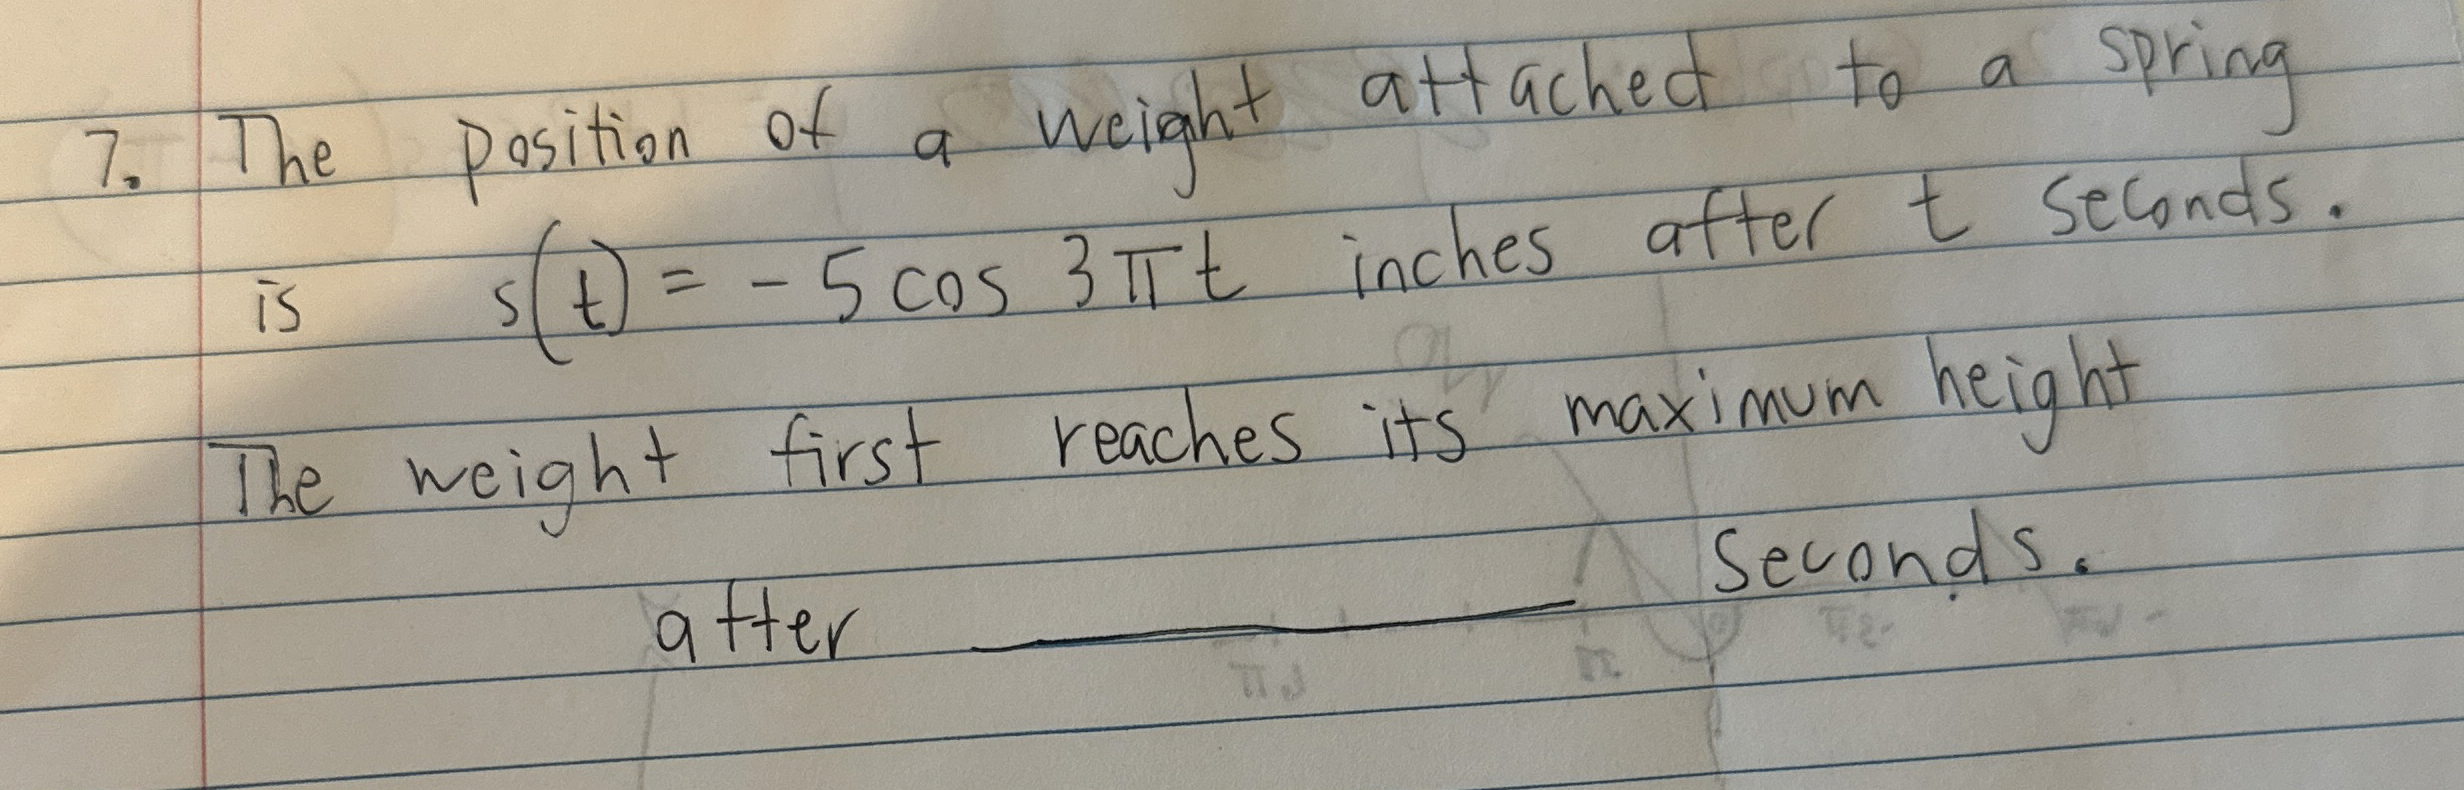 7. The position of a weight attached to a spring
is s(t) = -5 cos 3πt inches after t seconds.
The weight first reaches its maximum height
after ______ seconds.